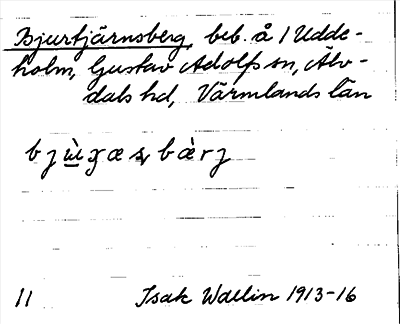 Bjurtjärnsberg, beb. å 1 Udde-
holm, Gustav Adolfs sn, Älv-
dals hd, Värmlands län
bjùɣæsbàrj
11 Isak Wallin 1913-16